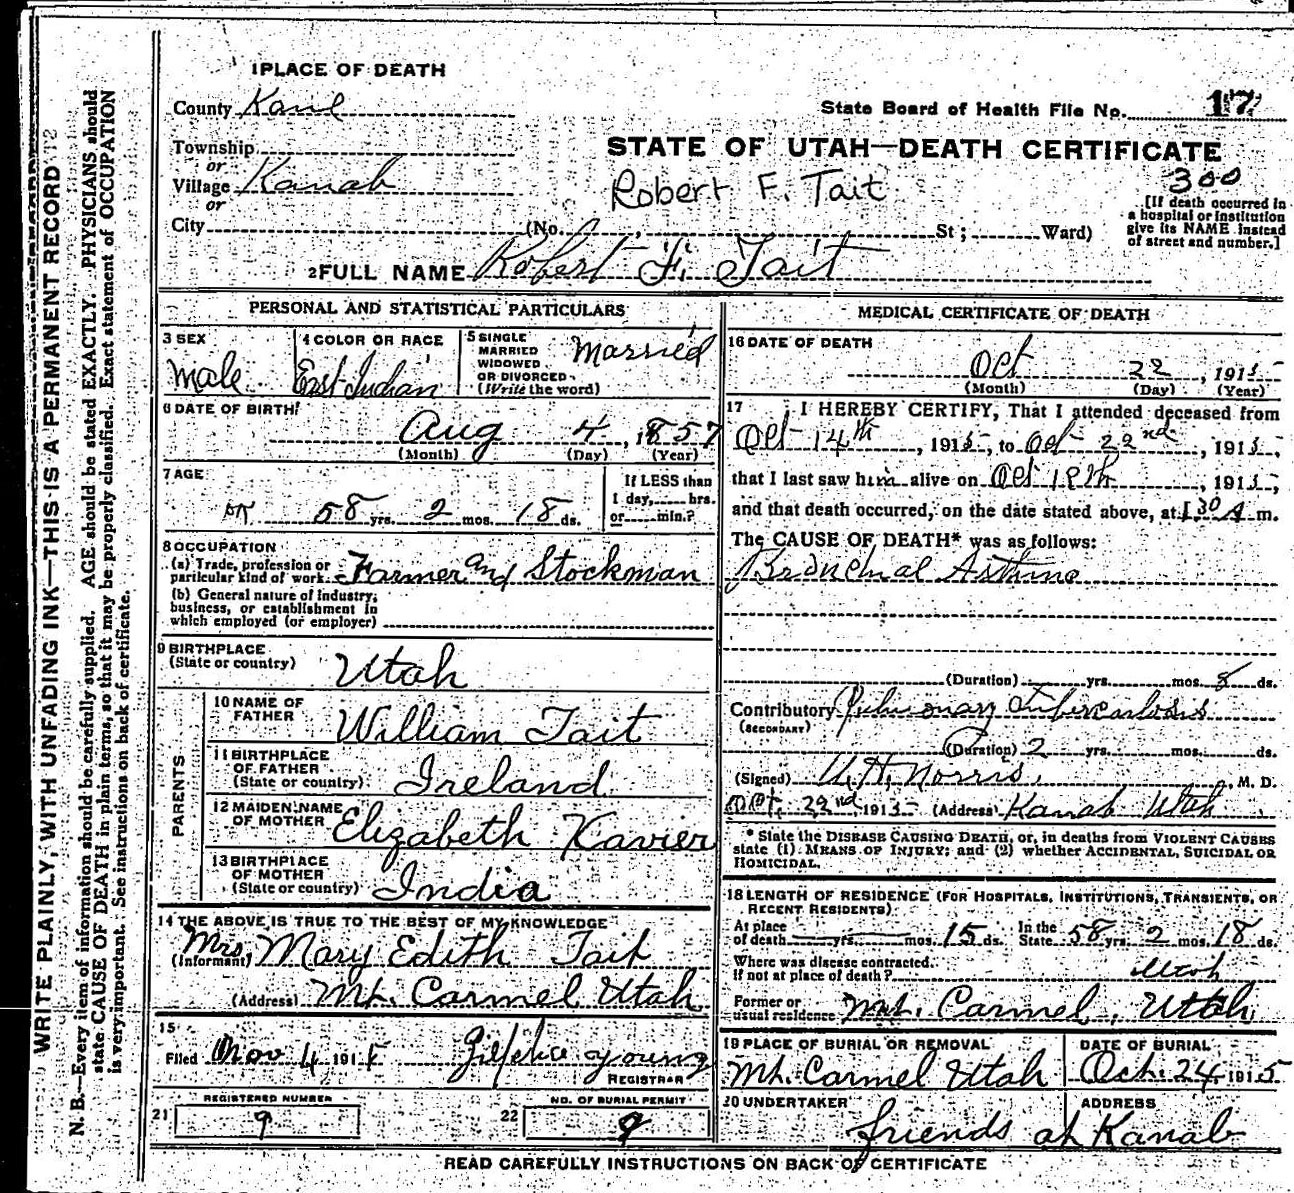 1 PLACE OF DEATH
County Kane
State Board of Health File No. 17
Township
or
Village Kanab
or
City (No. , St ; Ward)
STATE OF UTAH—DEATH CERTIFICATE
Robert F. Tait
300
[If death occurred in
a hospital or institution
give its NAME instead
of street and number.]
2 FULL NAME Robert F. Tait
PERSONAL AND STATISTICAL PARTICULARS
3 SEX
Male
4 COLOR OR RACE
East Indian
5 SINGLE
MARRIED
WIDOWED
OR DIVORCED
(Write the word)
Married
6 DATE OF BIRTH
Aug 4, 1857
(Month) (Day) (Year)
7 AGE
58 yrs. 2 mos. 18 ds.
If LESS than
1 day, hrs.
or min.?
8 OCCUPATION
(a) Trade, profession or
particular kind of work Farmer and Stockman
(b) General nature of industry,
business, or establishment in
which employed (or employer)
9 BIRTHPLACE
(State or country) Utah
PARENTS
10 NAME OF
FATHER William Tait
11 BIRTHPLACE
OF FATHER
(State or country) Ireland
12 MAIDEN NAME
OF MOTHER Elizabeth Xavier
13 BIRTHPLACE
OF MOTHER
(State or country) India
14 THE ABOVE IS TRUE TO THE BEST OF MY KNOWLEDGE
(Informant) Mrs. Mary Edith Tait
(Address) Mt. Carmel Utah
15
Filed Nov 4 191 young
REGISTRAR
REGISTERED NUMBER
21 9
NO. OF BURIAL PERMIT
22 9
MEDICAL CERTIFICATE OF DEATH
16 DATE OF DEATH
Oct 22, 1915
(Month) (Day) (Year)
17 I HEREBY CERTIFY, That I attended deceased from
Oct 14th, 1915, to Oct 22nd, 1915,
that I last saw him alive on Oct 18th, 1915,
and that death occurred, on the date stated above, at 1.30 A m.
The CAUSE OF DEATH* was as follows:
Bronchial Asthma
(Duration) yrs. mos. 8 ds.
Contributory Pulmonary Tuberculosis
(SECONDARY)
(Duration) 2 yrs. mos. ds.
(Signed) Norris, M. D.
Oct. 22nd 1915 (Address) Kanab Utah
* State the DISEASE CAUSING DEATH, or, in deaths from VIOLENT CAUSES
state (1) MEANS OF INJURY; and (2) whether ACCIDENTAL, SUICIDAL OR
HOMICIDAL.
18 LENGTH OF RESIDENCE (FOR HOSPITALS, INSTITUTIONS, TRANSIENTS, OR
RECENT RESIDENTS)
At place
of death yrs. mos. 15 ds. In the
State 58 yrs. 2 mos. 18 ds.
Where was disease contracted.
If not at place of death? Utah
Former or
usual residence Mt. Carmel, Utah
19 PLACE OF BURIAL OR REMOVAL
Mt. Carmel Utah
DATE OF BURIAL
Oct. 24 1915
20 UNDERTAKER
friends at Kanab
ADDRESS
READ CAREFULLY INSTRUCTIONS ON BACK OF CERTIFICATE
WRITE PLAINLY, WITH UNFADING INK—THIS IS A PERMANENT RECORD
N. B.—Every item of information should be carefully supplied. AGE should be stated EXACTLY. PHYSICIANS should
state CAUSE OF DEATH in plain terms, so that it may be properly classified. Exact statement of OCCUPATION
is very important. See instructions on back of certificate.